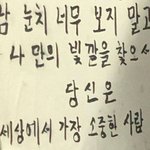 남 눈치 너무 보지 말고
나 만의 빛깔을 찾으
당신은
세상에서 가장 소중한 사람